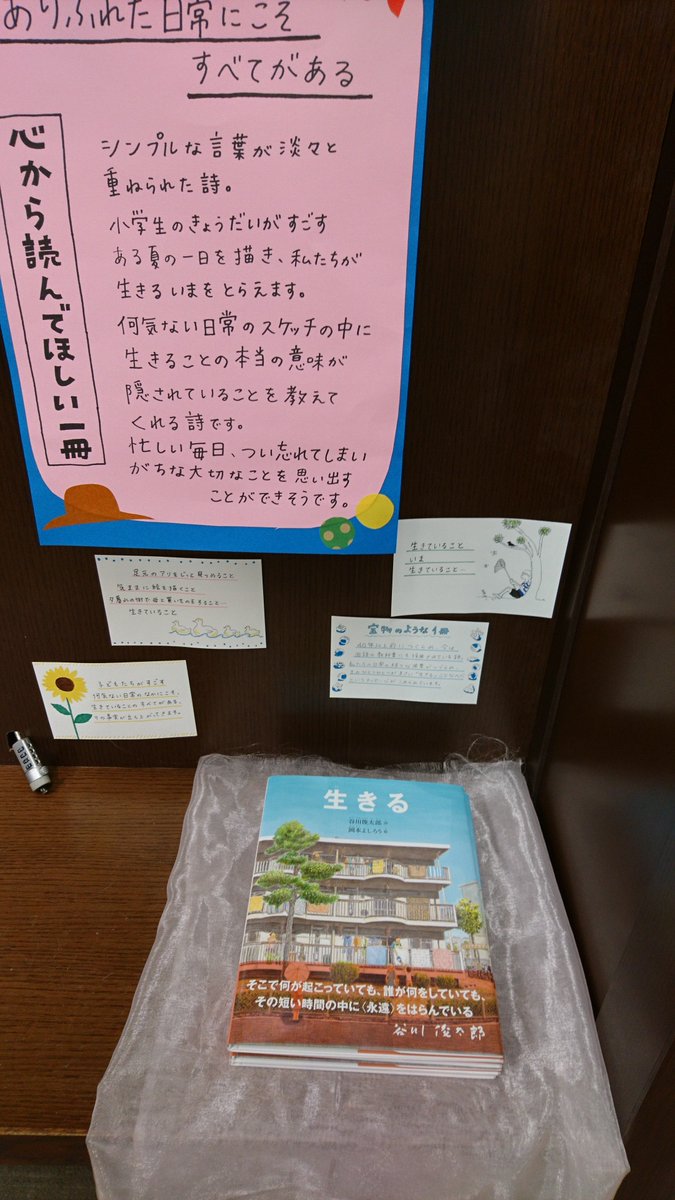 ありふれた日常にこそ
すべてがある
心から読んでほしい一冊
シンプルな言葉が淡々と
重ねられた詩。
小学生のきょうだいがすごす
ある夏の一日を描き、私たちが
生きるいまをとらえます。
何気ない日常のスケッチの中に
生きることの本当の意味が
隠されていることを教えて
くれる詩です。
忙しい毎日、つい忘れてしまい
がちな大切なことを思い出す
ことができそうです。
生きていること
いま
生きていること…
足元のアリをじっと見つめること
気ままに絵を描くこと
夕暮れの街で母と買いものをすること…
生きていること
宝物のような1冊
子どもたちがすごす
何気ない日常のなかにこそ、
生きていることのすべてがある、
生きる
谷川俊太郎 詩
岡本よしろう 絵
そこで何が起こっていても、誰が何をしていても、
その短い時間の中に〈永遠〉をはらんでいる
谷川俊太郎